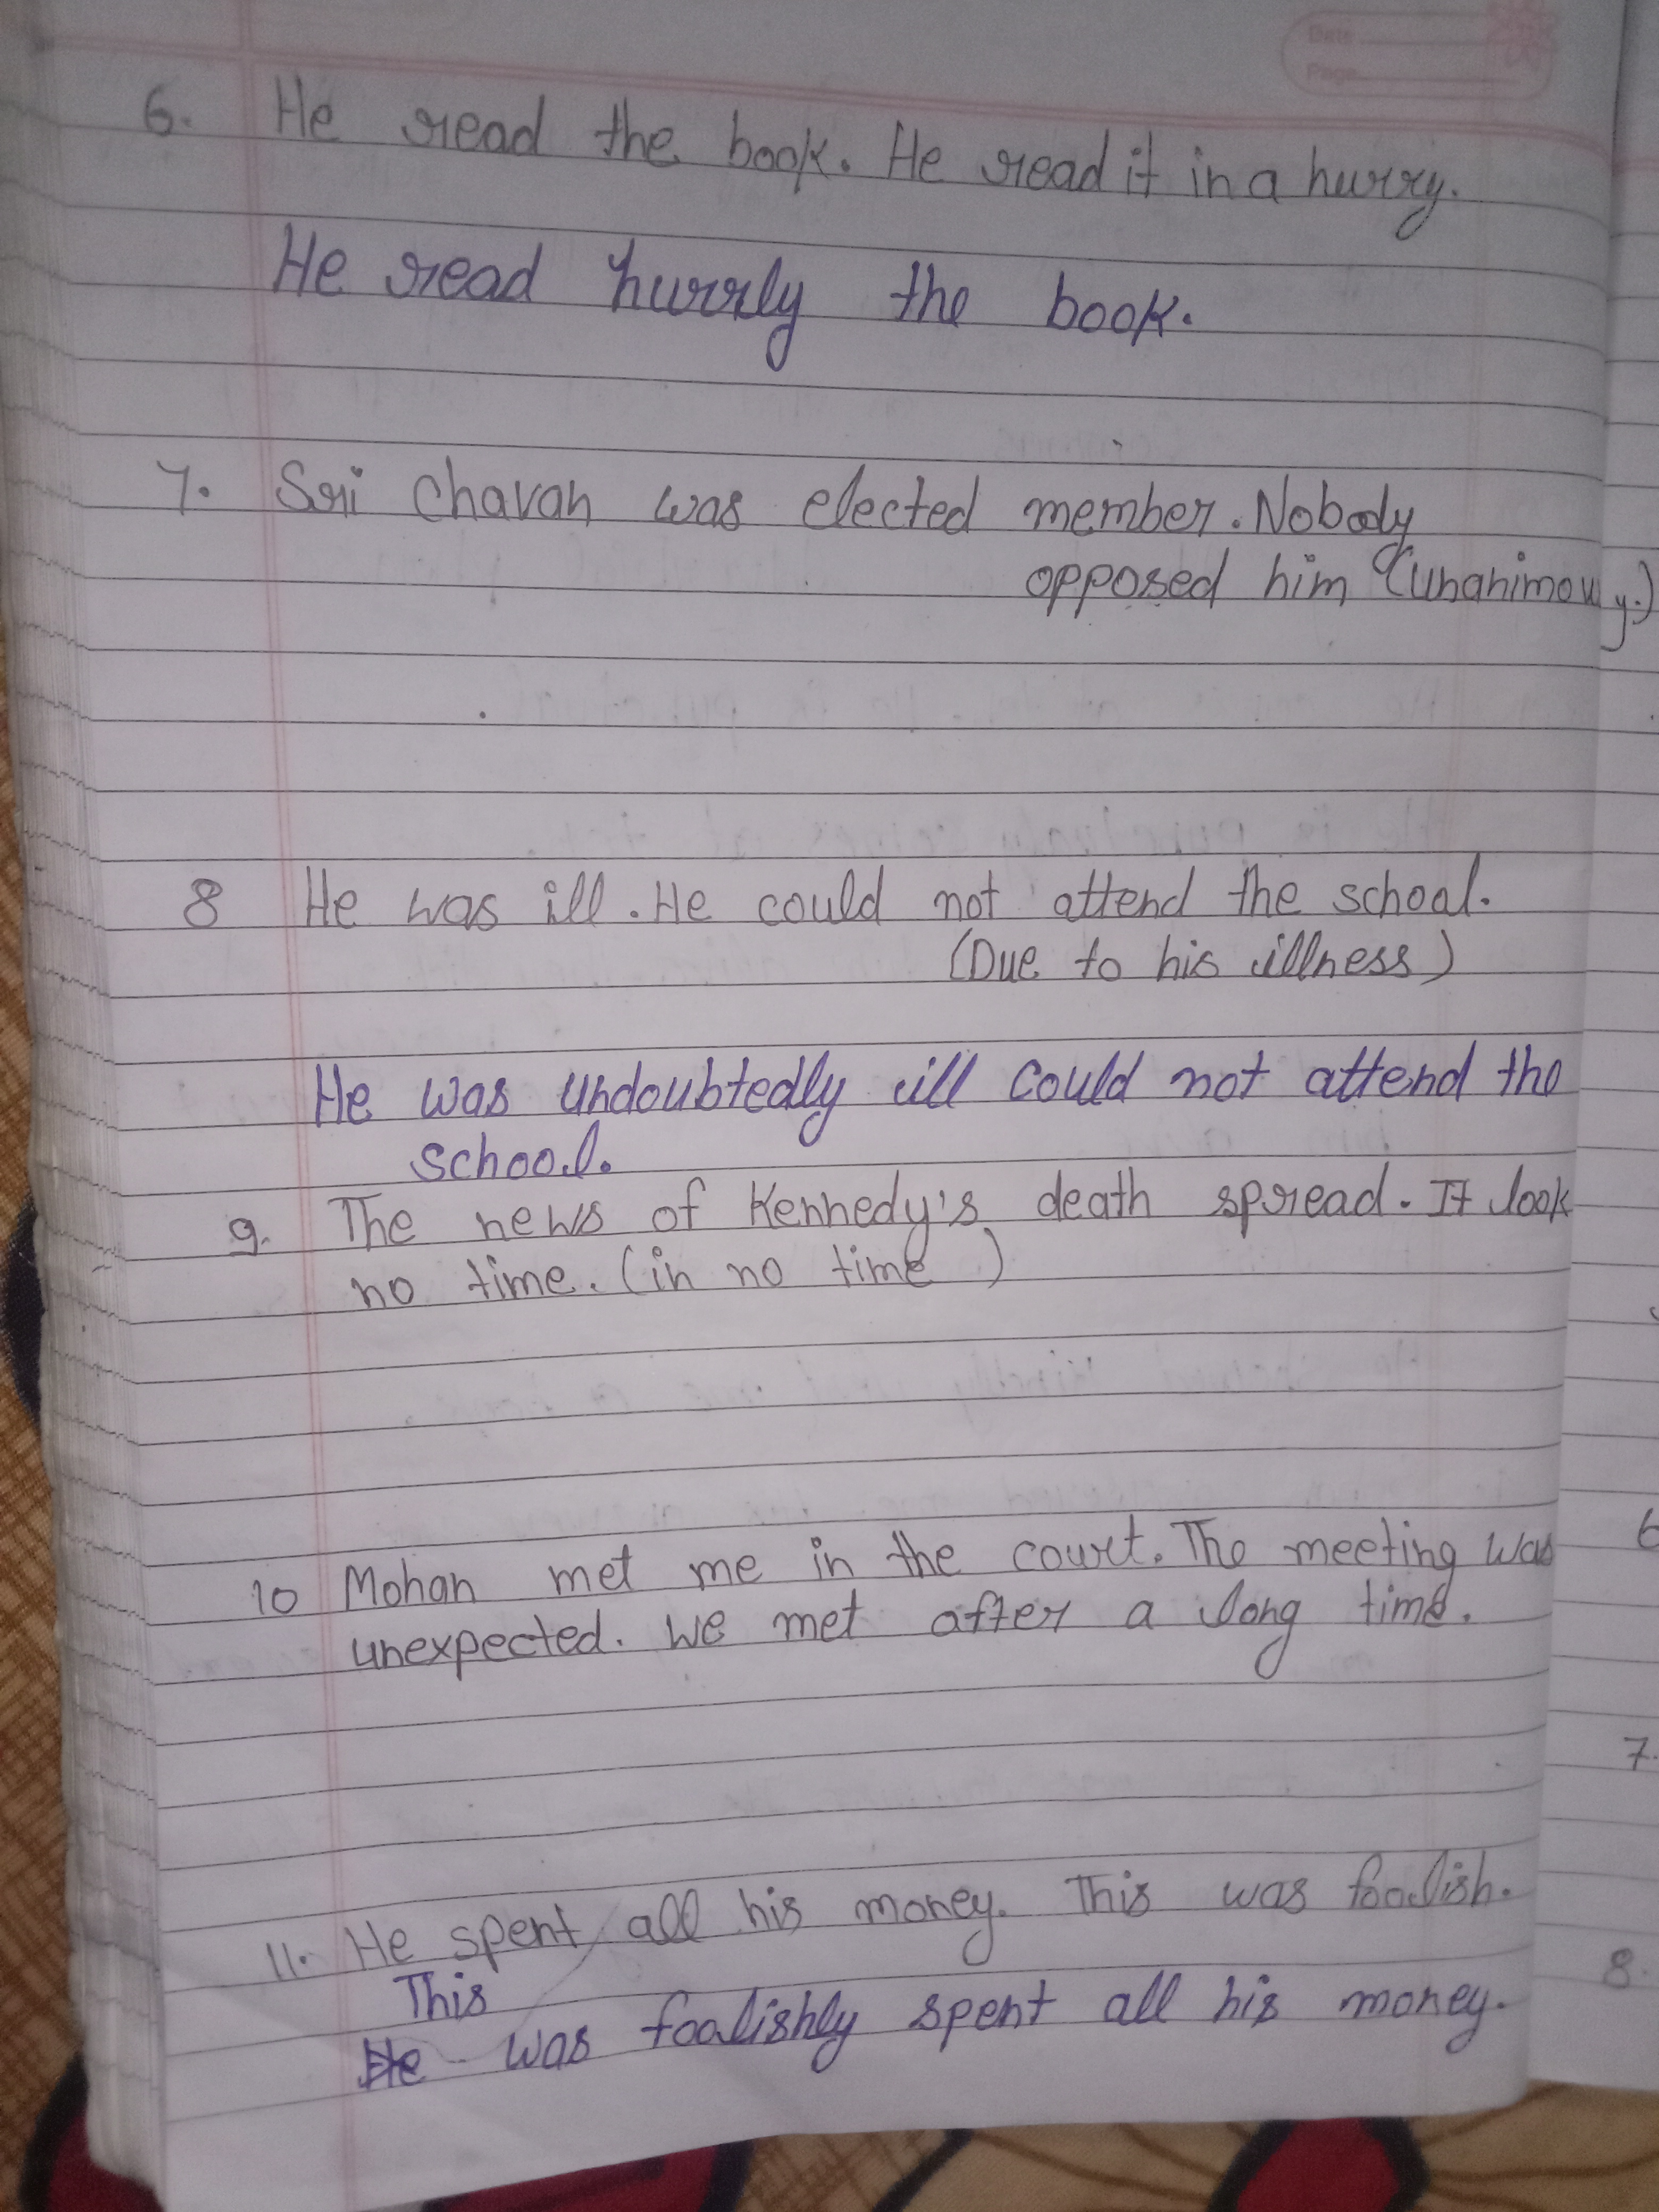 Date
Page
6. He read the book. He read it in a hurry.
He read hurrly the book.
7. Sri Chavan was elected member. Nobody
opposed him (Unanimouy.)
8 He was ill. He could not attend the school.
(Due to his illness)
He was undoubtedly ill could not attend the
school.
9. The news of Kennedy's death spread. It look
no time. (in no time)
10 Mohan met me in the court. The meeting was
unexpected. We met after a long time.
11. He spent all his money. This was foolish.
This
He was foolishly spent all his money.
6
7.
8.